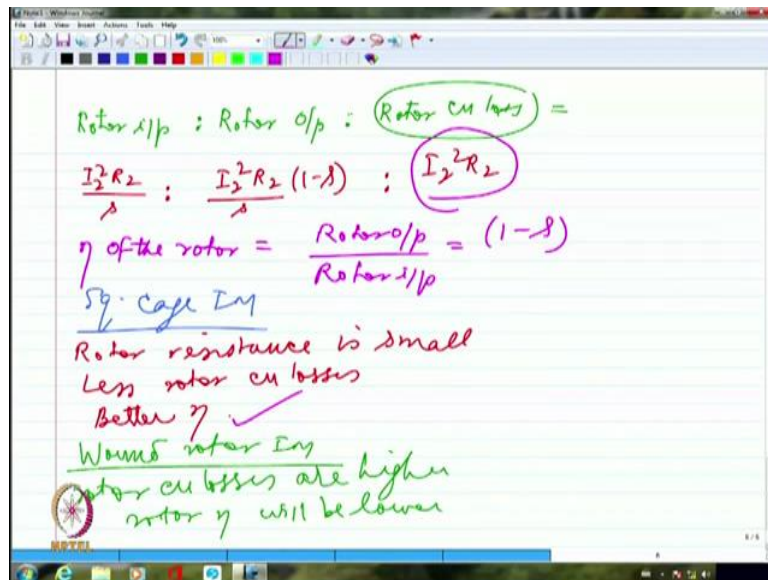 Note1 - Windows Journal
File Edit View Insert Actions Tools Help
Rotor i/p : Rotor o/p : Rotor cu loss =
I₂²R₂/s : I₂²R₂/s (1-s) : I₂²R₂
η of the rotor = Rotor o/p / Rotor i/p = (1-s)
Sq. cage IM
Rotor resistance is small
Less rotor cu losses
Better η ✓
Wound rotor IM
rotor cu losses are higher
rotor η will be lower
NPTEL